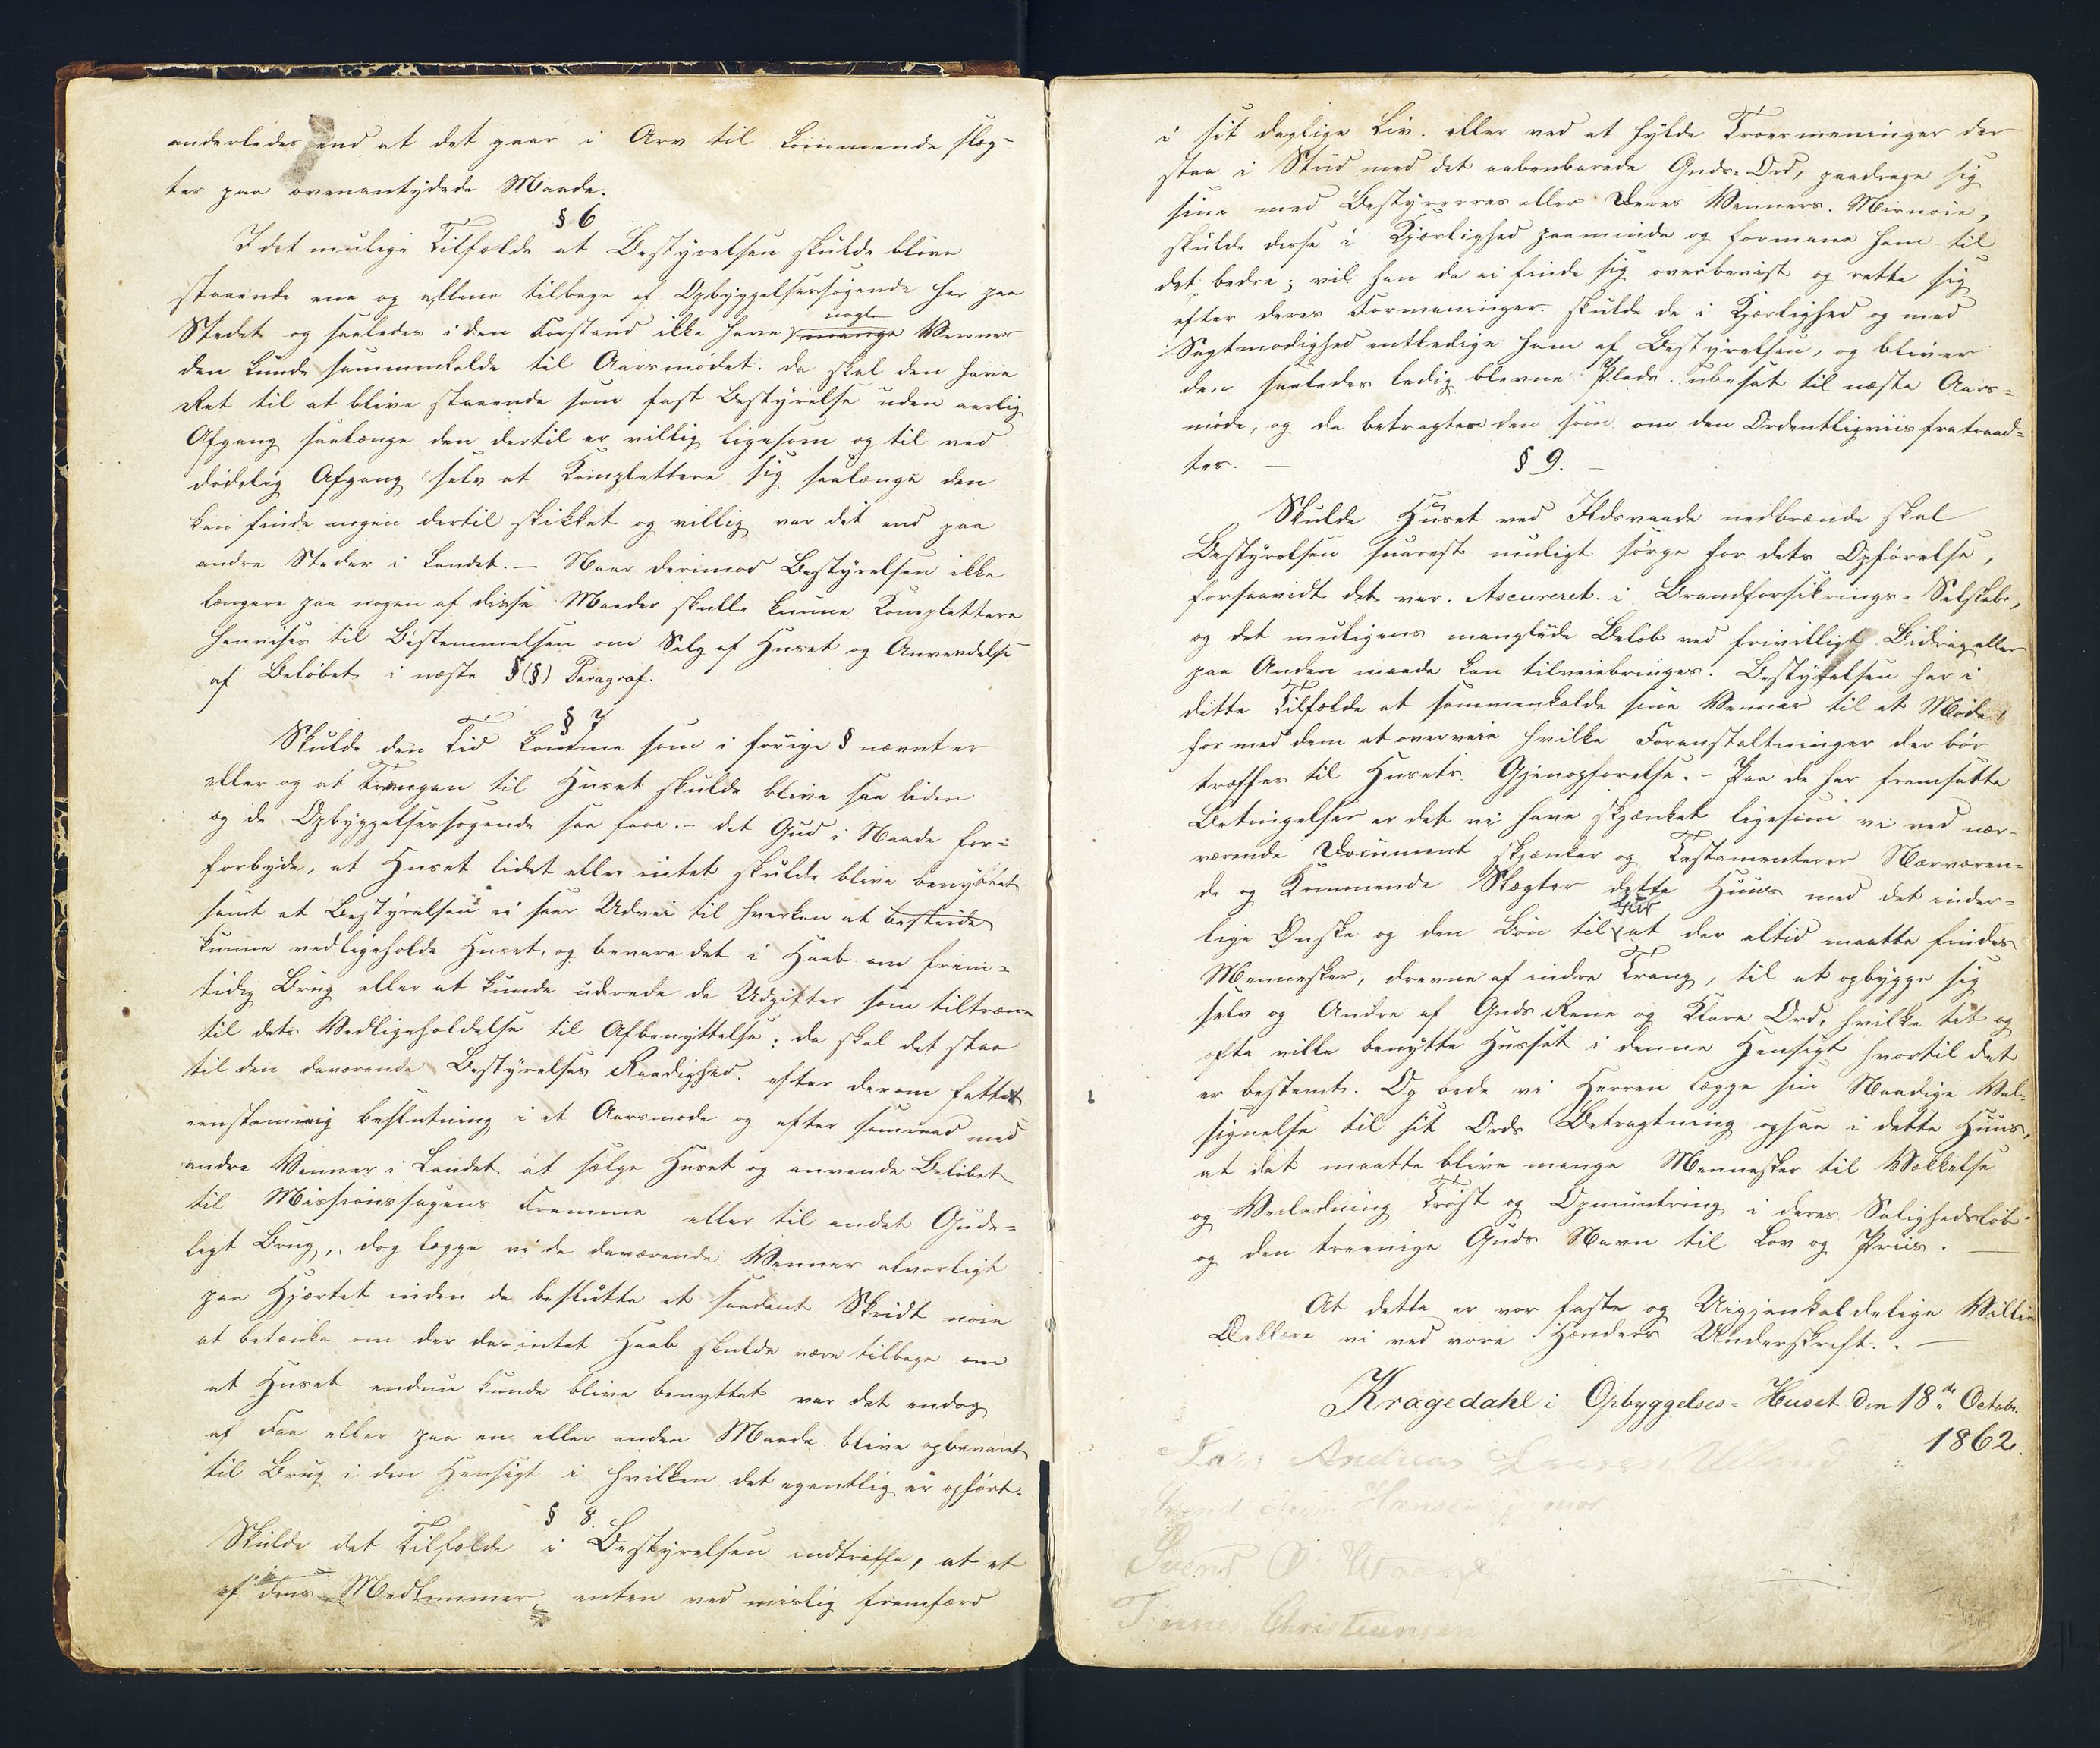 anderledes end at det gaar i Arv til kommende slæg-
ter paa ovenantydede Maade.
§ 6
I det mulige Tilfælde at Bestyrelsen skulde blive
staaende ene og allene tilbage af Opbyggelsessøgende her paa
Stedet og saaledes i den Forstand ikke have mange nogle Venner
den kunde sammenkalde til Aarsmødet. da skal den have
Ret til at blive staaende som fast Bestyrelse uden aarlig
Afgang saalænge den dertil er villig ligesom og til ved
dødelig Afgang selv at Komplettere sig saalænge den
kan finde nogen dertil skikket og villig var det end paa
andre Steder i Landet. — Naar derimod Bestyrelsen ikke
længere paa nogen af disse Maader skulle kunne Komplettere
henvises til Bestemmelsen om Salg af Huset og Anvendelse
af Beløbet i næste § (§) Paragraf.
§ 7
Skulde den Tid komme som i forige § nævnt er
eller og at Trangen til Huset skulde blive saa liden
og de Opbyggelsessøgende saa faae. – det Gud i Naade for-
forbyde, at Huset lidet eller intet skulde blive benyttet
samt at Bestyrelsen ei saae Udvei til hverken at bestride
kunne vedligeholde Huset, og bevare det i Haab om frem-
tidig Brug eller at kunde udrede de Udgifter som tiltrænges
til dets Vedligeholdelse til Afbenyttelse; da skal det staa
til den daværende Bestyrelses Raadighed. efter derom fattet
eenstemmig beslutning i et Aarsmøde og efter samraad med
andre Venner i Landet at sælge Huset og anvende Beløbet
til Missionssagens Fremme eller til andet Gude-
ligt Brug, dog lægge vi de daværende Venner alvorligt
paa Hjærtet inden de beslutte et saadant Skridt nøie
at betænke om der da intet Haab skulde være tilbage om
at Huset endnu kunde blive benyttet var det endog
af Faa eller paa en eller anden Maade blive opbevaret
til Brug i den Hensigt i hvilken det egentlig er opført.
§ 8.
Skulde det Tilfælde i Bestyrelsen indtræffe, at et
af dens Medlemmer, enten ved mislig fremfærd
i sit daglige Liv. eller ved at hylde Troesmeninger der
staa i Strid med det aabenbarede Guds-Ord, paadrage sig
sine med Bestyreres eller Deres Venners. Misnøie,
skulde disse i Kjærlighed paaminde og formane ham til
det bedre; vil han da ei finde sig overbevist og rette sig
efter deres Formaninger. skulde de i Kjærlighed og med
Sagtmodighed entledige ham af Bestyrelsen, og bliver
den saaledes ledig blevne Plads. ubesat til næste Aars-
møde, og da betragtes den som om den Ordentligviis fratraad-
tes. —
§ 9. –
Skulde Huset ved Ildsvaade nedbrænde skal
Bestyrelsen snarest muligt sørge for dets Opførelse,
forsaavidt det var. Ascureret. i Brandforsikrings-Selskab,
og det muligens manglende Beløb ved frivilligt Bidrag eller
paa Anden maade kan tilveiebringes. Bestyrelsen har i
dette Tilfælde at sammenkalde sine Venner til et Møde,
for med dem at overveie hvilke Foranstaltninger der bør
træffes til Husets Gjenopførelse. – Paa de her fremsatte
Betingelser er det vi have skjænket ligesom vi ved nær-
værende Document skjænker og Testamenterer Nærværen-
de og Kommende Slægter dette Huus med det inder-
lige Ønske og den Bøn til Gud at der altid maatte findes
Mennesker, drevne af indre Trang, til at opbygge sig
selv og Andre af Guds Rene og Klare Ord, hvilke tit og
ofte ville benytte Husset i denne Hensigt hvortil det
er bestemt. Og bede vi Herren lægge sin Naadige Vel-
signelse til sit Ords Betragtning ogsaa i dette Huus,
at det maatte blive mange Mennesker til Vækkelse
og Veiledning Trøst og Opmuntring i deres Salighedsløb
og den treenige Guds Navn til Lov og Priis. —
At dette er vor faste og Uigjenkaldelige Villie
Deklere vi ved vore Hænders Underskrift. . —
Kragedahl i Opbyggelses-Huset den 18de Octobr.
1862.
Lars Andreas Larsen Uland
Svend Hansen
Svend O Waage
Tønnes Christiansen